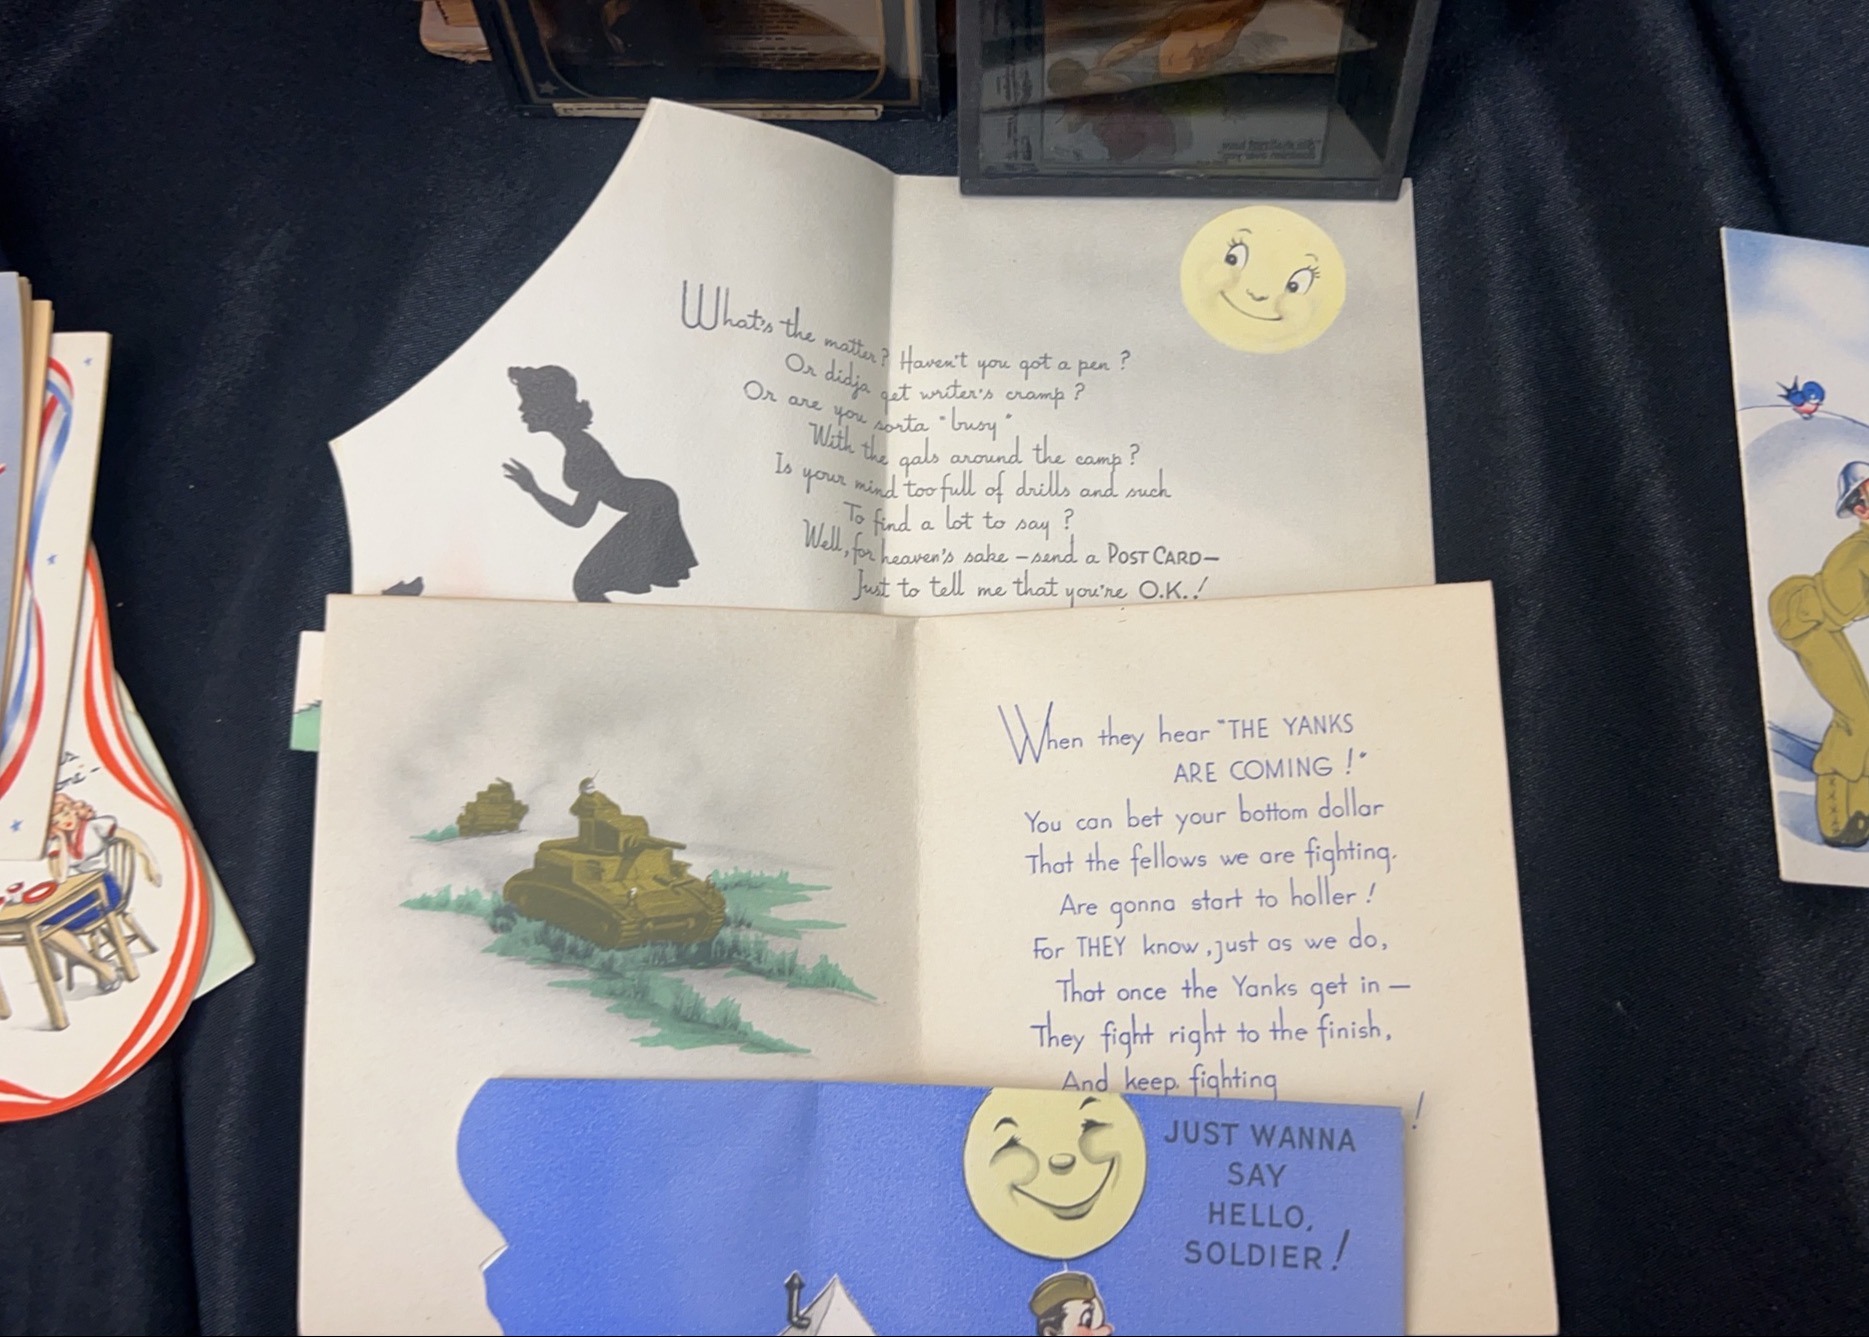 What's the matter? Haven't you got a pen?
Or didja get writer's cramp?
Or are you sorta "busy"
With the gals around the camp?
Is your mind too full of drills and such
To find a lot to say?
Well, for heaven's sake — send a POST CARD —
Just to tell me that you're O.K.!
When they hear "THE YANKS
ARE COMING!"
You can bet your bottom dollar
That the fellows we are fighting
Are gonna start to holler!
For THEY know, just as we do,
That once the Yanks get in —
They fight right to the finish,
And keep fighting
!
JUST WANNA
SAY
HELLO,
SOLDIER!